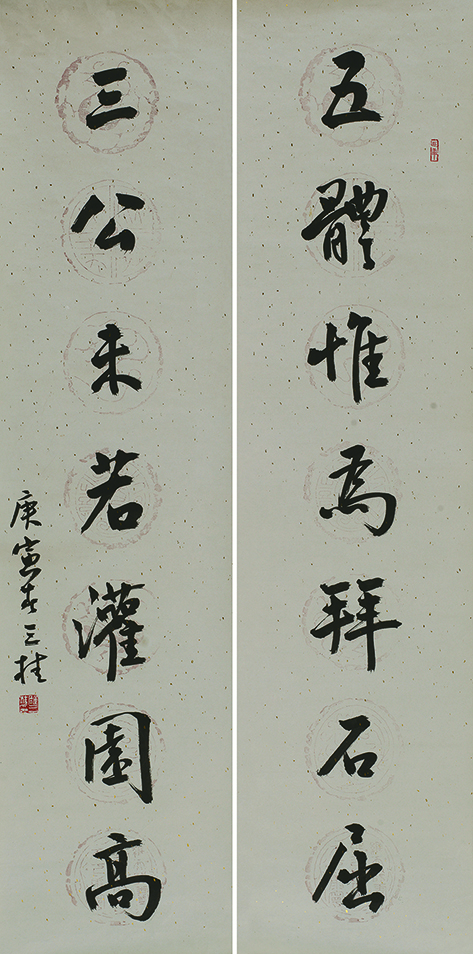 五體惟為拜石屈
三公未若灌園高
庚寅春三桂